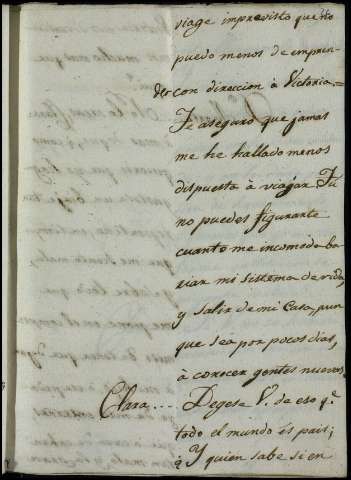 viage imprevisto que no
puedo menos de empren-
der con direccion à Victoria.=
Te aseguro que jamas
me he hallado menos
dispuesta à viajar. Tu
no puedes figurarte
cuanto me incomoda ba-
riar mi sistema de vida,
y salir de mi Casa, aun
que sea por pocos dias,
à conocer gentes nuevas.
Clara.... Degese V. de eso q.e
todo el mundo es pais;
¿Y quien sabe si en